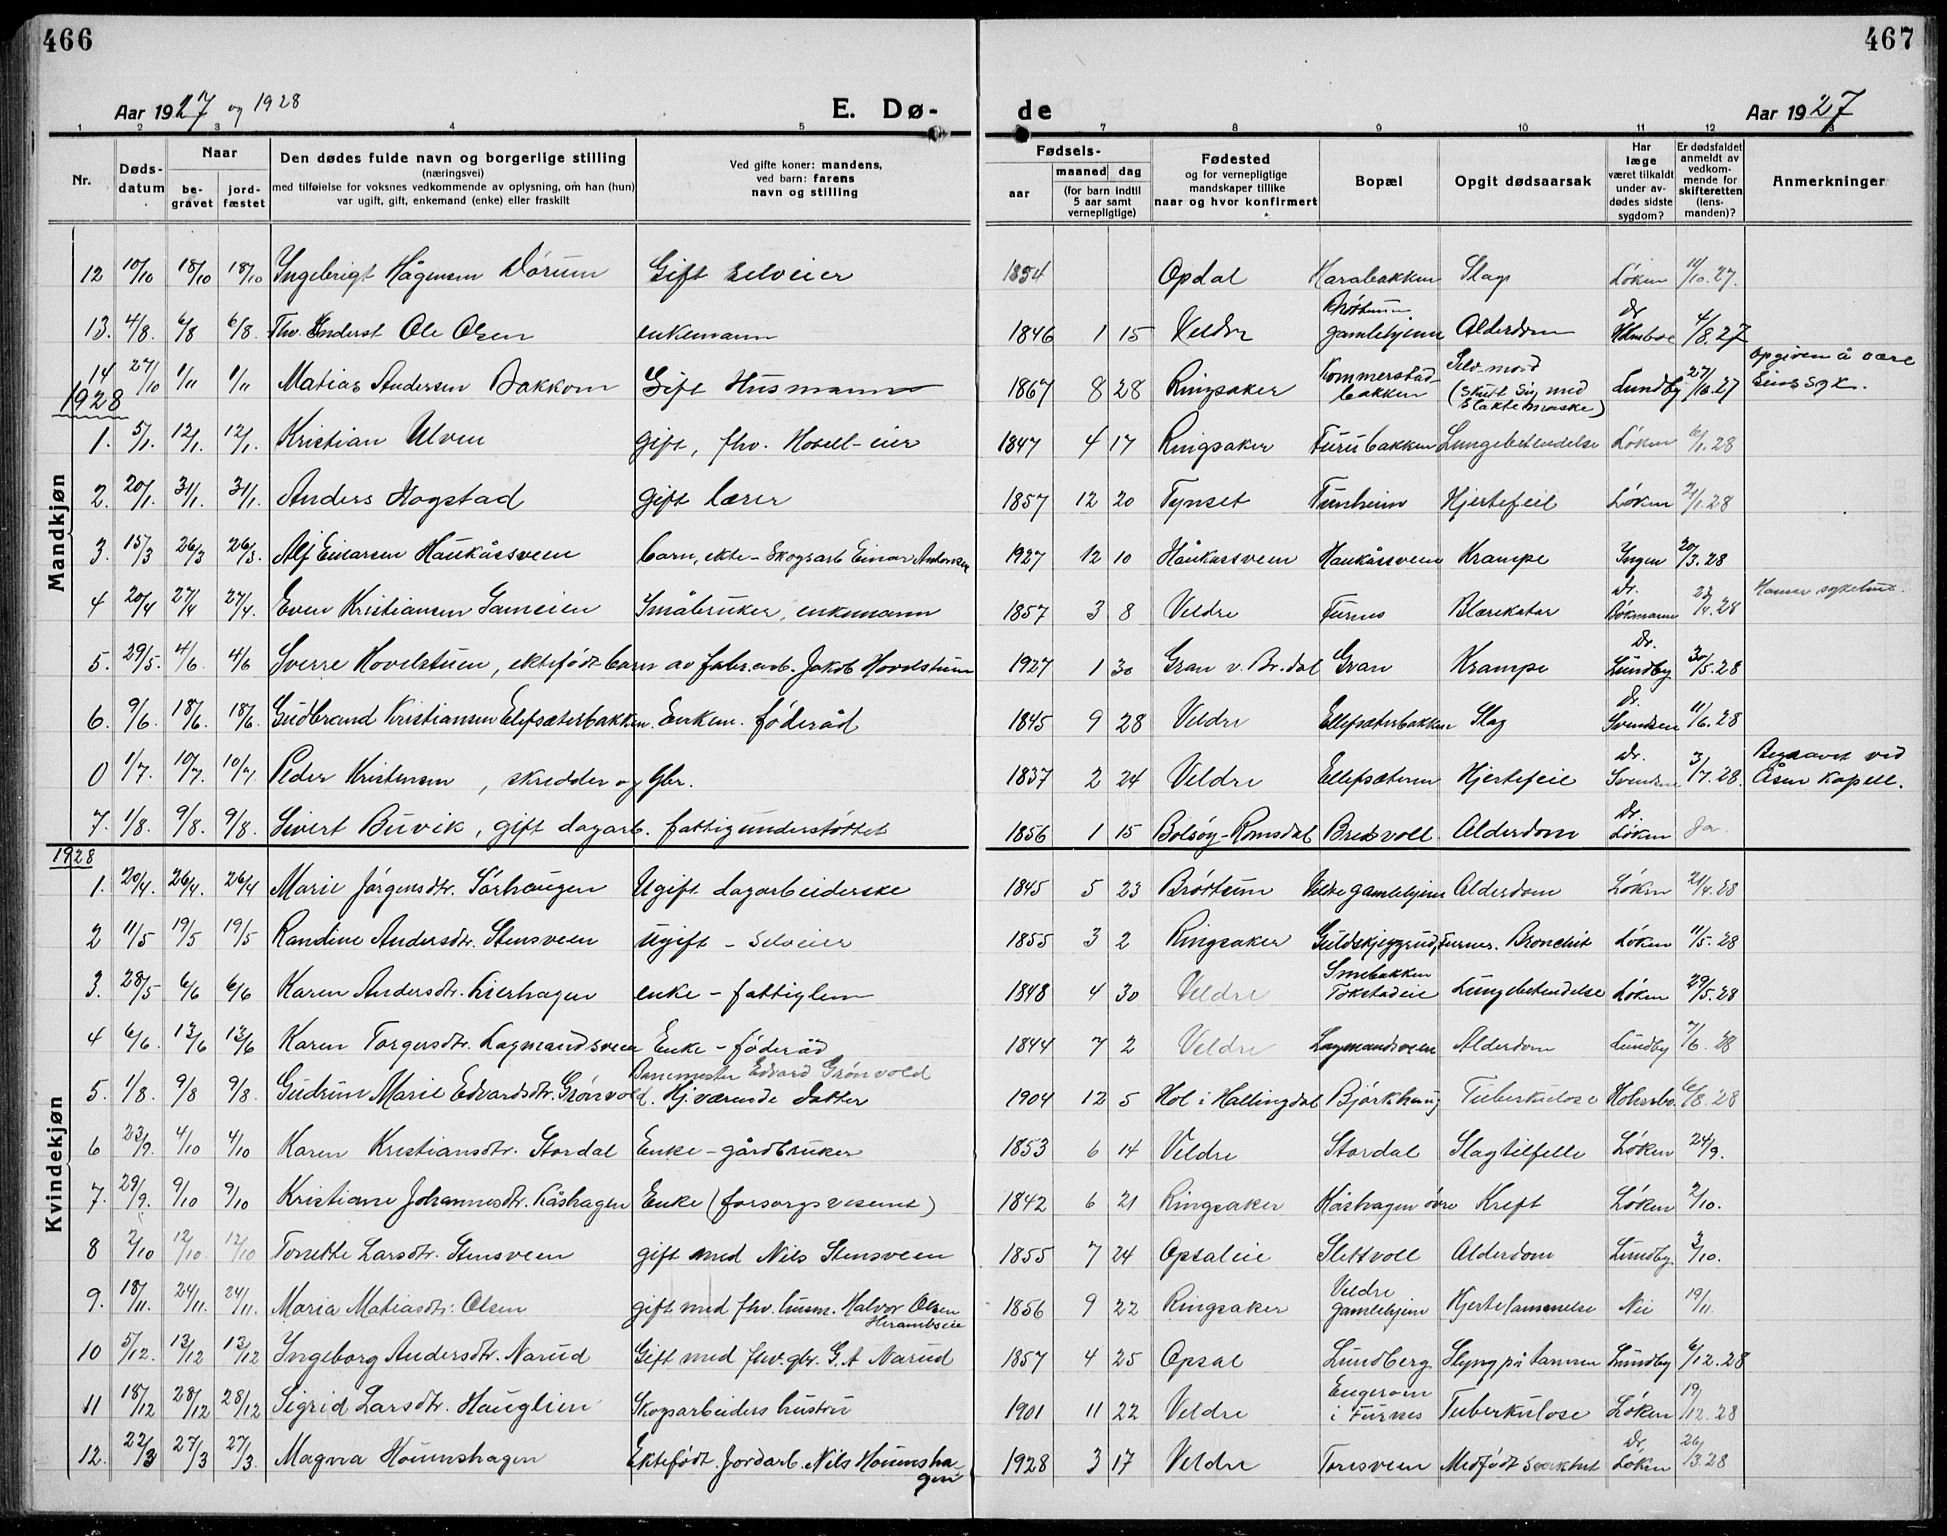 466
467
Aar 1927 og 1928
E. Dø-
de
Aar 1927
1 2 3 4 5 7 8 9 10 11 12 13
Nr.
Døds-datum
Naar
be-gravet
jord-fæstet
Den dødes fulde navn og borgerlige stilling
(næringsvei)
med tilføielse for voksnes vedkommende av oplysning, om han (hun)
var ugift, gift, enkemand (enke) eller fraskilt
Ved gifte koner: mandens,
ved barn: farens
navn og stilling
Fødsels-
aar
maaned dag
(for barn indtil 5 aar samt vernepligtige)
Fødested
og for vernepligtige
mandskaper tillike
naar og hvor konfirmert
Bopæl
Opgit dødsaarsak
Har læge været tilkaldt under av-dødes sidste sygdom?
Er dødsfaldet anmeldt av vedkom-mende for skifteretten (lens-manden)?
Anmerkninger
Mandkjøn
12 10/10 18/10 18/10 Ingebrigt Hågensen Dørum Gift selveier 1854 Opdal Harabakken Slag Løken 11/10.27.
13. 4/8. 6/8 6/8. Ole Olsen enkemann 1846 1 15 Veldre Brøttum gamlehjem Alderdom Dr Holmboe 4/8.27
14 27/10 1/11 1/11 Matias Andersen Bakkom Gift Husmann 1867 8 28 Ringsaker Kommerstad-bakken Selvmord (skutt sig med slaktemaske) Lundby 27/10.27 opgiven å være sinssyk.
1928
1. 5/1. 12/1. 12/1. Kristian Ulven gift, fhv. Hotell-eier 1847 4 17 Ringsaker Furubakken Lungebetendelse Løken 6/1.28
2. 20/1. 31/1. 31/1. Anders Hogstad gift lærer 1857 12 20 Tynset Tunheim Hjertefeil Løken 21/1.28
3. 15/3 26/3 26/3. Alf Einarsen Haukåssveen barn, ekte - Skogsarb Einar Antonsen 1927 12 10 Håukåssveen Haukåssveen Krampe Ingen 20/3.28
4 20/4 27/4 27/4. Even Kristiansen Gameien Småbruker, enkemann 1857 3 8 Veldre Furnes Blærekatar Dr. Bökmann 22/4.28 Hamar sykehus.
5. 29/5. 4/6. 4/6 Sverre Hovelstuen, ektefødt barn av fabr.arb. Jakob Hovelstuen 1927 1 30 Gran v. Br.dal Gran Krampe Dr. Lundby 30/5.28
6. 9/6. 18/6. 18/6. Gudbrand Kristiansen Elefsæterbakken. Enkem. føderåd 1845 9 28 Veldre Ellefsæterbakken Slag Dr. Svendsen 11/6.28
0 1/7. 10/7. 10/7. Peder Kristensen, skredder og Gbr. 1837 2 24 Veldre Ellefsæteren Hjertefeil Dr. Svendsen 3/7.28. Begravet ved Åsen Kapell.
7. 1/8. 9/8. 9/8. Sivert Buvik, gift dagarb. fattigunderstøttet 1856 1 15 Bolsøy-Romsdal Bredsvoll Alderdom Dr. Løken Ja.
1928
Kvindekjøn
1. 20/4. 26/4. 26/4 Marie Jørgensdtr. Sørhaugen Ugift dagarbeiderske 1845 5 23 Brøttum Veldre gamlehjem Alderdom Løken 21/4.28
2 11/5 19/5 19/5 Randine Andersdtr. Stensveen Ugift - selveier 1855 3 2 Ringsaker Guldskjeggrud, Furnes. Bronchit Løken 11/5.28
3. 28/5 6/6 6/6 Karen Andersdtr. Lierhagen enke - fattiglem 1848 4 30 Veldre Smebakken Tokstadeie Lungebetendelse Løken 29/5.28
4 6/6. 13/6 13/6 Karen Torgersdtr. Lagmandsveen Enke - føderåd 1844 7 2 Veldre Lagmandsveen Alderdom Lundby 7/6.28
5. 1/8. 9/8 9/8. Gudrun Marie Edvardsdtr. Grønvold. Banemester Edvard Grønvold Hj.værende datter 1904 12 5 Hol i Hallingdal Bjørkhaug Tuberkulose Holmbo. 6/8.28
6 23/9. 4/10 4/10 Karen Kristiansdtr. Stordal Enke - gårdbruker 1853 6 14 Veldre Stordal Slagtilfelle Løken 24/9.
7. 29/9. 9/10 9/10 Kristiane Johannesdtr. Kåshagen Enke (forsorgsvesenet) 1842 6 21 Ringsaker Kåshagen övre Kreft Løken 2/10.
8 2/10 12/10. 12/10 Tonette Larsdtr. Stensveen gift med Nils Stensveen 1855 7 24 Opsaleie Slettvoll Alderdom Lundby. 3/10.
9. 18/11. 24/11. 24/11. Maria Matiasdtr. Olsen gift med fhv. husm. Halvor Olsen Herambseie 1856 9 22 Ringsaker Veldre gamlehjem Hjertelammelse Nei 19/11.
10 5/12. 13/12 13/12 Ingeborg Andersdtr. Narud Gift med fhv. gbr. G. A Narud 1857 4 25 Opsal Lundberg Slyng på tarmen Lundby 6/12.28
11 18/12 28/12 28/12 Sigrid Larsdtr. Hauglien Skogsarbeiders hustru 1901 11 22 Veldre Engerom i Furnes Tuberkulose Løken 19/12.28
12. 22/3 27/3 27/3. Magna Hounshagen Ektefødt. Jordarb. Nils Hounshagen 1928 3 17 Veldre Toresveen Medfødt svakhet Dr. Løken 26/3.28